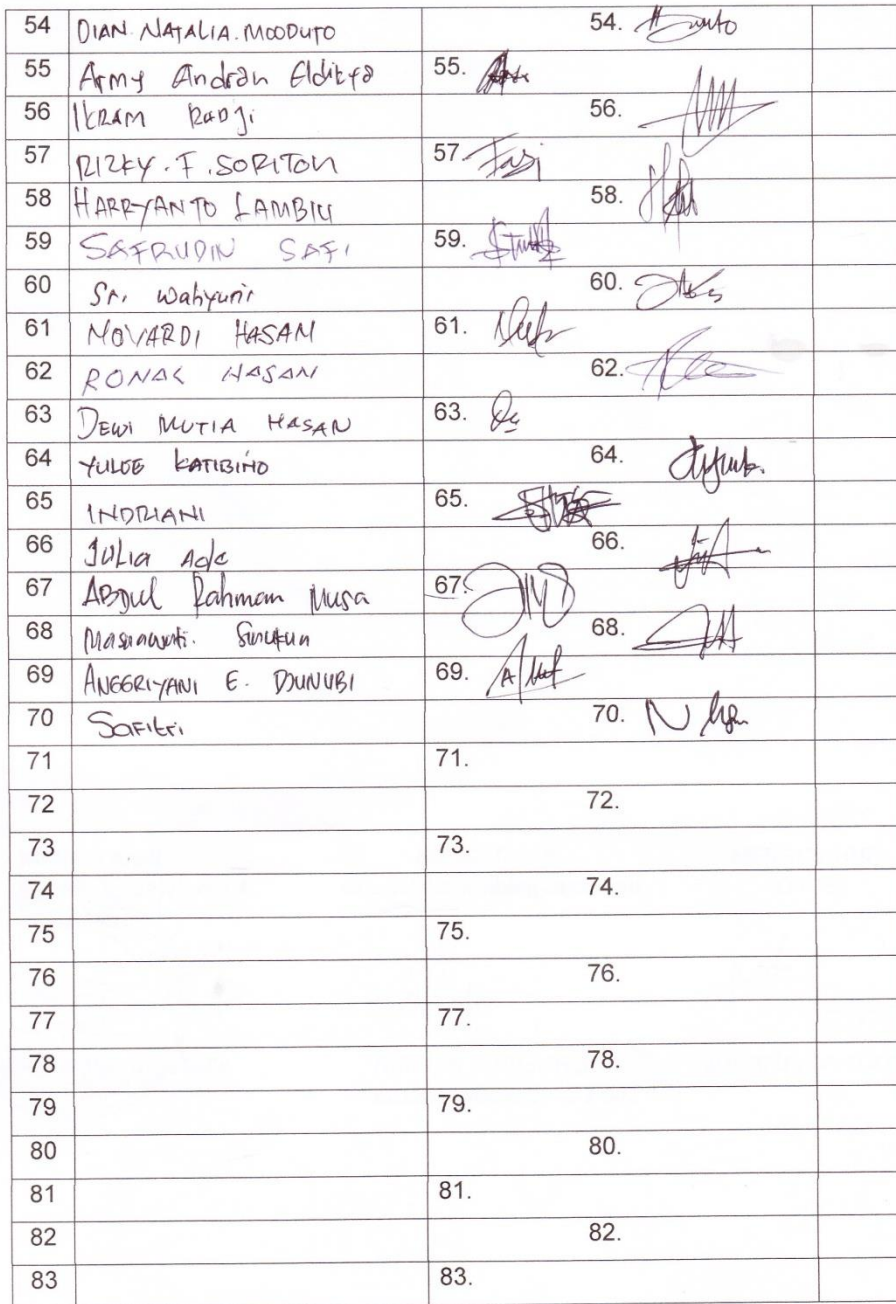 54 DIAN. NATALIA. MOODUTO 54.
55 Army Andrean Elditya 55.
56 IKRAM RADJI 56.
57 RIZKY. F. SORITON 57.
58 HARRYANTO LAMBIU 58.
59 SAFRUDIN SAFI 59.
60 Sri Wahyuni 60.
61 NOVARDI HASAN 61.
62 RONAL HASAN 62.
63 DEWI MUTIA HASAN 63.
64 YULCE KATIBINO 64.
65 INDRIANI 65.
66 JULIA Ade 66.
67 ABDUL Rahman Musa 67.
68 Masnawati. 68.
69 ANGGRIYANI E. DJUNUBI 69.
70 SAFItri 70.
71 71.
72 72.
73 73.
74 74.
75 75.
76 76.
77 77.
78 78.
79 79.
80 80.
81 81.
82 82.
83 83.